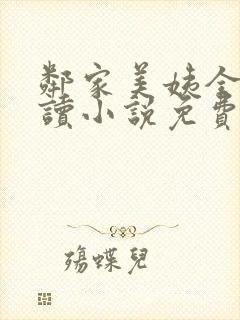 鄰家美姨全
讀小說免費
殤蝶兒